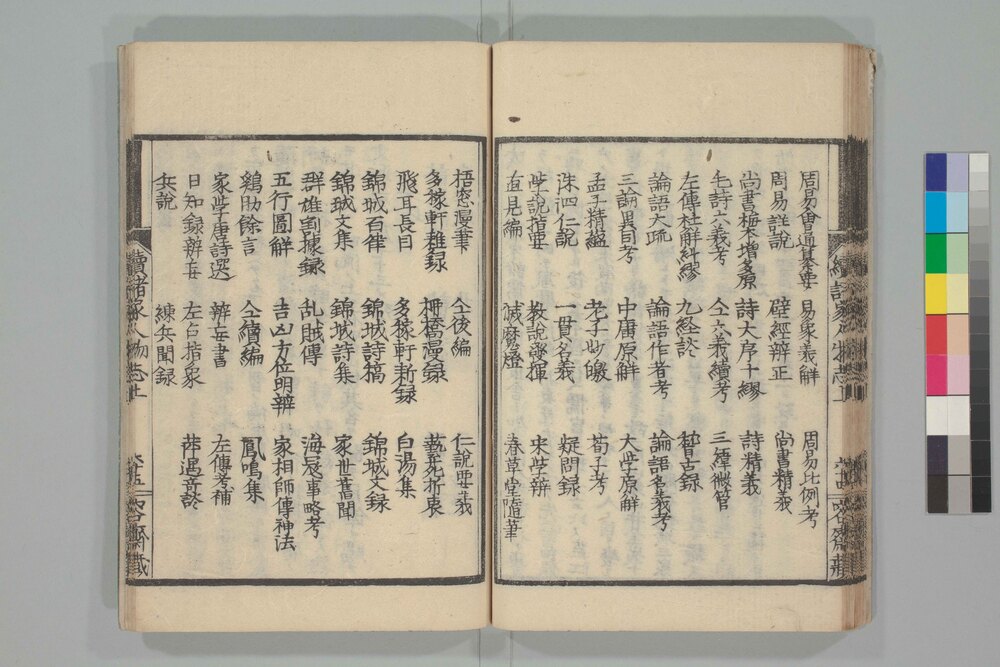 周易會通纂要 易象義解 周易比例考
周易詳說 壁經辨正 尚書精義
尚書梅本增多原 詩大序十繆 詩精義
毛詩六義考 仝六義續考 三緯微管
左傳杜解糾繆 九経談 稽古録
論語大疏 論語作者考 論語名義考
三論異同考 中庸原解 大学原解
孟子精蘊 老子妙皦 荀子考
洙泗仁說 一貫名義 疑問録
学說指要 教說發揮 宋学辨
直見編 試蘑燈 春草堂随筆
梧窓漫筆 仝後編 仁說要義
多稼軒雜録 柵橋漫録 藝苑折衷
飛耳長目 多稼軒新録 白湯集
錦城百律 錦城詩稿 錦城文録
錦城文集 錦城詩集 家世舊聞
群雄割據録 乱賊傳 海辰事略考
五行圖解 吉凶方位明辨 家相師傳神法
鷄肋餘言 仝續編 鳳鳴集
家学唐詩選 辨妄書 左傳考補
日知録辨妄 左占指象
兵說 練兵聞録
續諸家人物志上